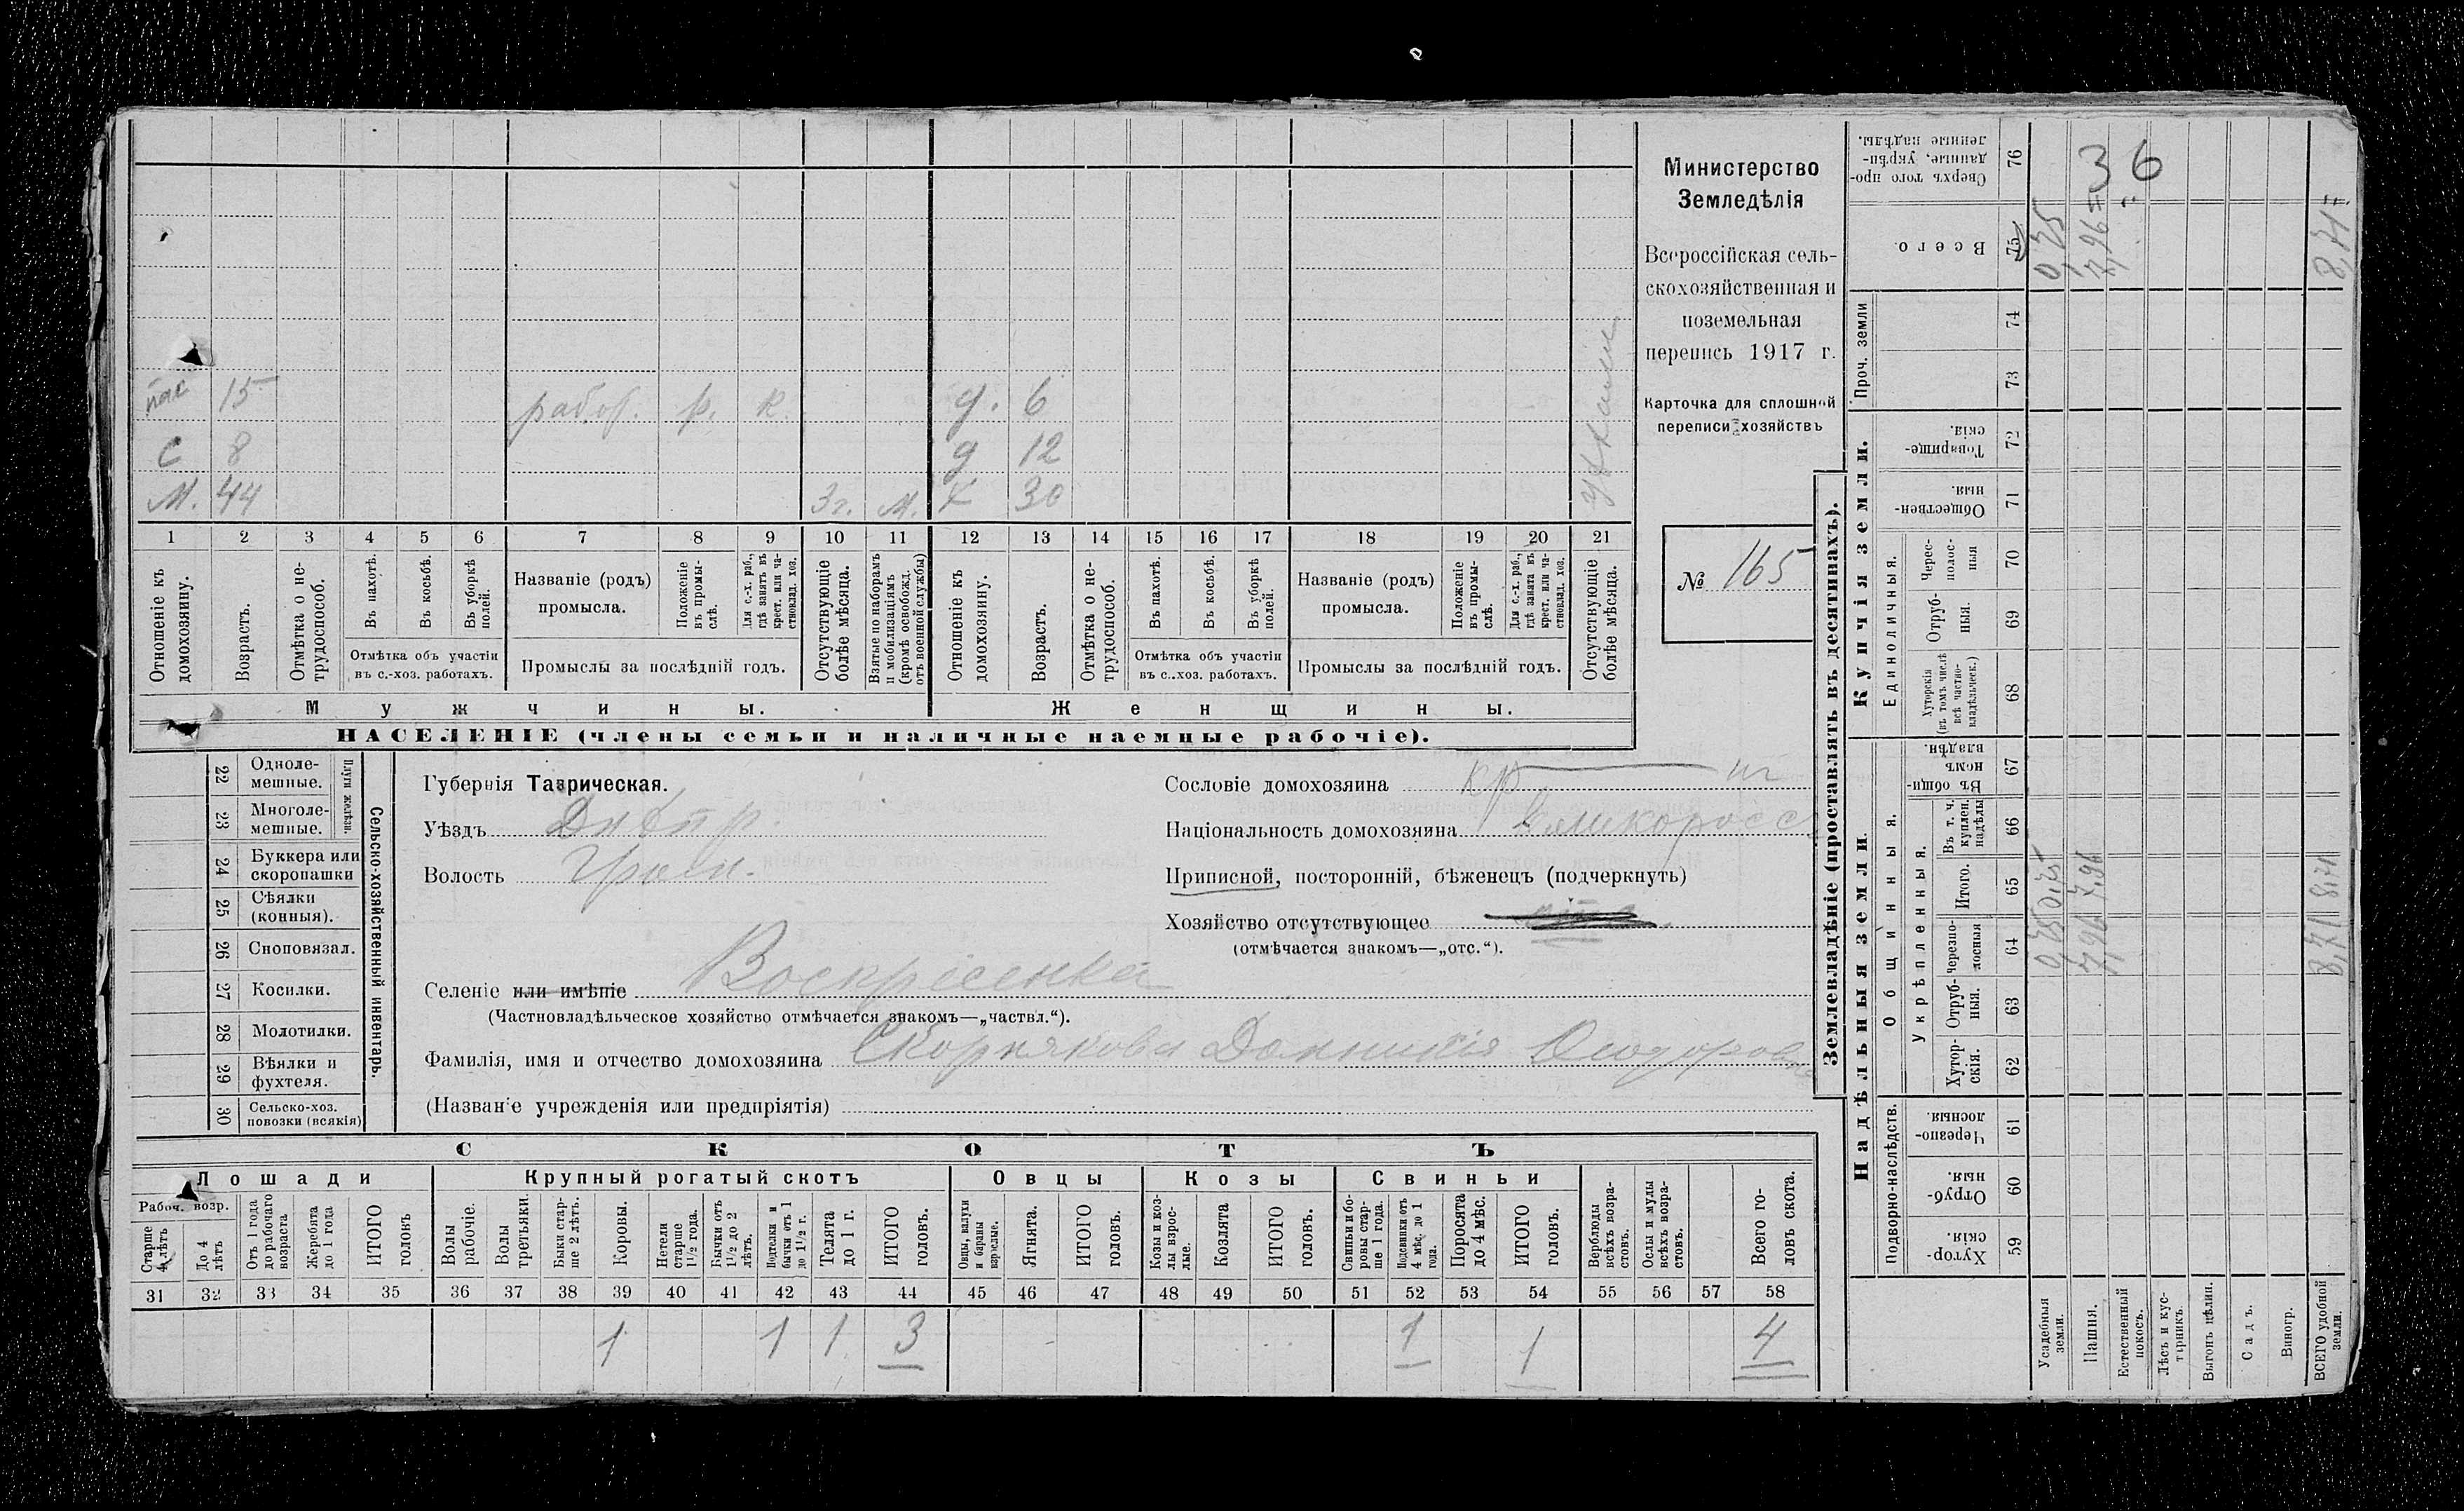 Министерство
Земледѣлія
Всероссійская сель-
скохозяйственная и
поземельная
перепись 1917 г.
Карточка для сплошной
переписи хозяйствъ
№ 165
пас 15 работ. р. к. д. 6
с 8 д 12
м. 44 3 г. м. х 30
1 2 3 4 5 6 7 8 9 10 11 12 13 14 15 16 17 18 19 20 21
Отношеніе къ домохозяину.
Возрастъ.
Отмѣтка о не-трудоспособ.
Въ пахотѣ.
Въ косьбѣ.
Въ уборкѣ полей.
Отмѣтка объ участіи
въ с.-хоз. работахъ.
Названіе (родъ)
промысла.
Положеніе въ промы-слѣ.
Для с.-х. раб., гдѣ занятъ въ крест. или ча-стновлад. хоз.
Промыслы за послѣдній годъ.
Отсутствующіе болѣе мѣсяца.
Взятые по наборамъ и мобилизаціямъ (кромѣ освобожд. отъ военной службы)
Отношеніе къ домохозяину.
Возрастъ.
Отмѣтка о не-трудоспособ.
Въ пахотѣ.
Въ косьбѣ.
Въ уборкѣ полей.
Отмѣтка объ участіи
въ с.-хоз. работахъ.
Названіе (родъ)
промысла.
Положеніе въ промы-слѣ.
Для с.-х. раб., гдѣ занята въ крест. или ча-стновлад. хоз.
Промыслы за послѣдній годъ.
Отсутствующіе болѣе мѣсяца.
Мужчины.
Женщины.
НАСЕЛЕНІЕ (члены семьи и наличные наемные рабочіе).
Сельско-хозяйственный инвентарь.
Плуги желѣзн.
22 Одноле-мешные.
23 Многоле-мешные.
24 Буккера или скоропашки
25 Сѣялки (конныя).
26 Сноповязал.
27 Косилки.
28 Молотилки.
29 Вѣялки и фухтеля.
30 Сельско-хоз. повозки (всякія)
Губернія Таврическая.
Уѣздъ Днѣпр.
Волость
Сословіе домохозяина кр
Національность домохозяина Великоросс
Приписной, посторонній, бѣженецъ (подчеркнуть)
Хозяйство отсутствующее
(отмѣчается знакомъ—„отс.“).
Селеніе или имѣніе Воскресенка
(Частновладѣльческое хозяйство отмѣчается знакомъ—„частвл.“).
Фамилія, имя и отчество домохозяина Скорнякова
(Названіе учрежденія или предпріятія)
СКОТЪ
Лошади
Крупный рогатый скотъ
Овцы
Козы
Свиньи
Рабоч. возр.
Старше 4 лѣтъ
До 4 лѣтъ
Отъ 1 года до рабочаго возраста
Жеребята до 1 года
ИТОГО головъ
Волы рабочіе.
Волы третьяки.
Быки стар-ше 2 лѣтъ.
Коровы.
Нетели старше 1½ года.
Бычки отъ 1½ до 2 лѣтъ.
Подтелки и бычки отъ 1 до 1½ г.
Телята до 1 г.
ИТОГО головъ.
Овцы, валухи и бараны взрослые.
Ягнята.
ИТОГО головъ.
Козы и коз-лы взрос-лые.
Козлята
ИТОГО головъ.
Свиньи и бо-ровы стар-ше 1 года.
Подсвинки отъ 4 мѣс. до 1 года.
Поросята до 4 мѣс.
ИТОГО головъ.
Верблюды всѣхъ возра-стовъ.
Ослы и мулы всѣхъ возра-стовъ.
Всего го-ловъ скота.
31 32 33 34 35 36 37 38 39 40 41 42 43 44 45 46 47 48 49 50 51 52 53 54 55 56 57 58
1 1 1 3 1 1 4
Землевладѣніе (проставлять въ десятинахъ).
Надѣльныя земли.
Купчія земли.
Проч. земли
Подворно-наслѣдств.
Общинныя.
Укрѣпленныя.
Единоличныя.
59 Хутор-скія.
60 Отруб-ныя.
61 Черезпо-лосныя.
62 Хутор-скія.
63 Отруб-ныя.
64 черезпо-лосныя
65 Итого.
66 Въ т. ч. куплен. надѣлы
67 Въ общи-номъ владѣн.
68 Хуторскія (въ томъ числѣ всѣ частно-владѣльческ.)
69 Отруб-ныя.
70 Черес-полос-ныя
71 Обществен-ныя.
72 Товарище-скія.
73
74
75 Всего.
76 Сверхъ того про-данные, укрѣп-ленные надѣлы.
Усадебныя земли. 0,75 0,75 0,75
Пашня. 7,96 7,96 7,96
Естественный покосъ.
Лѣсъ и кус-тарникъ.
Выгонъ цѣлин.
Садъ.
Виногр.
ВСЕГО удобной земли. 8,71 8,71 8,71
36